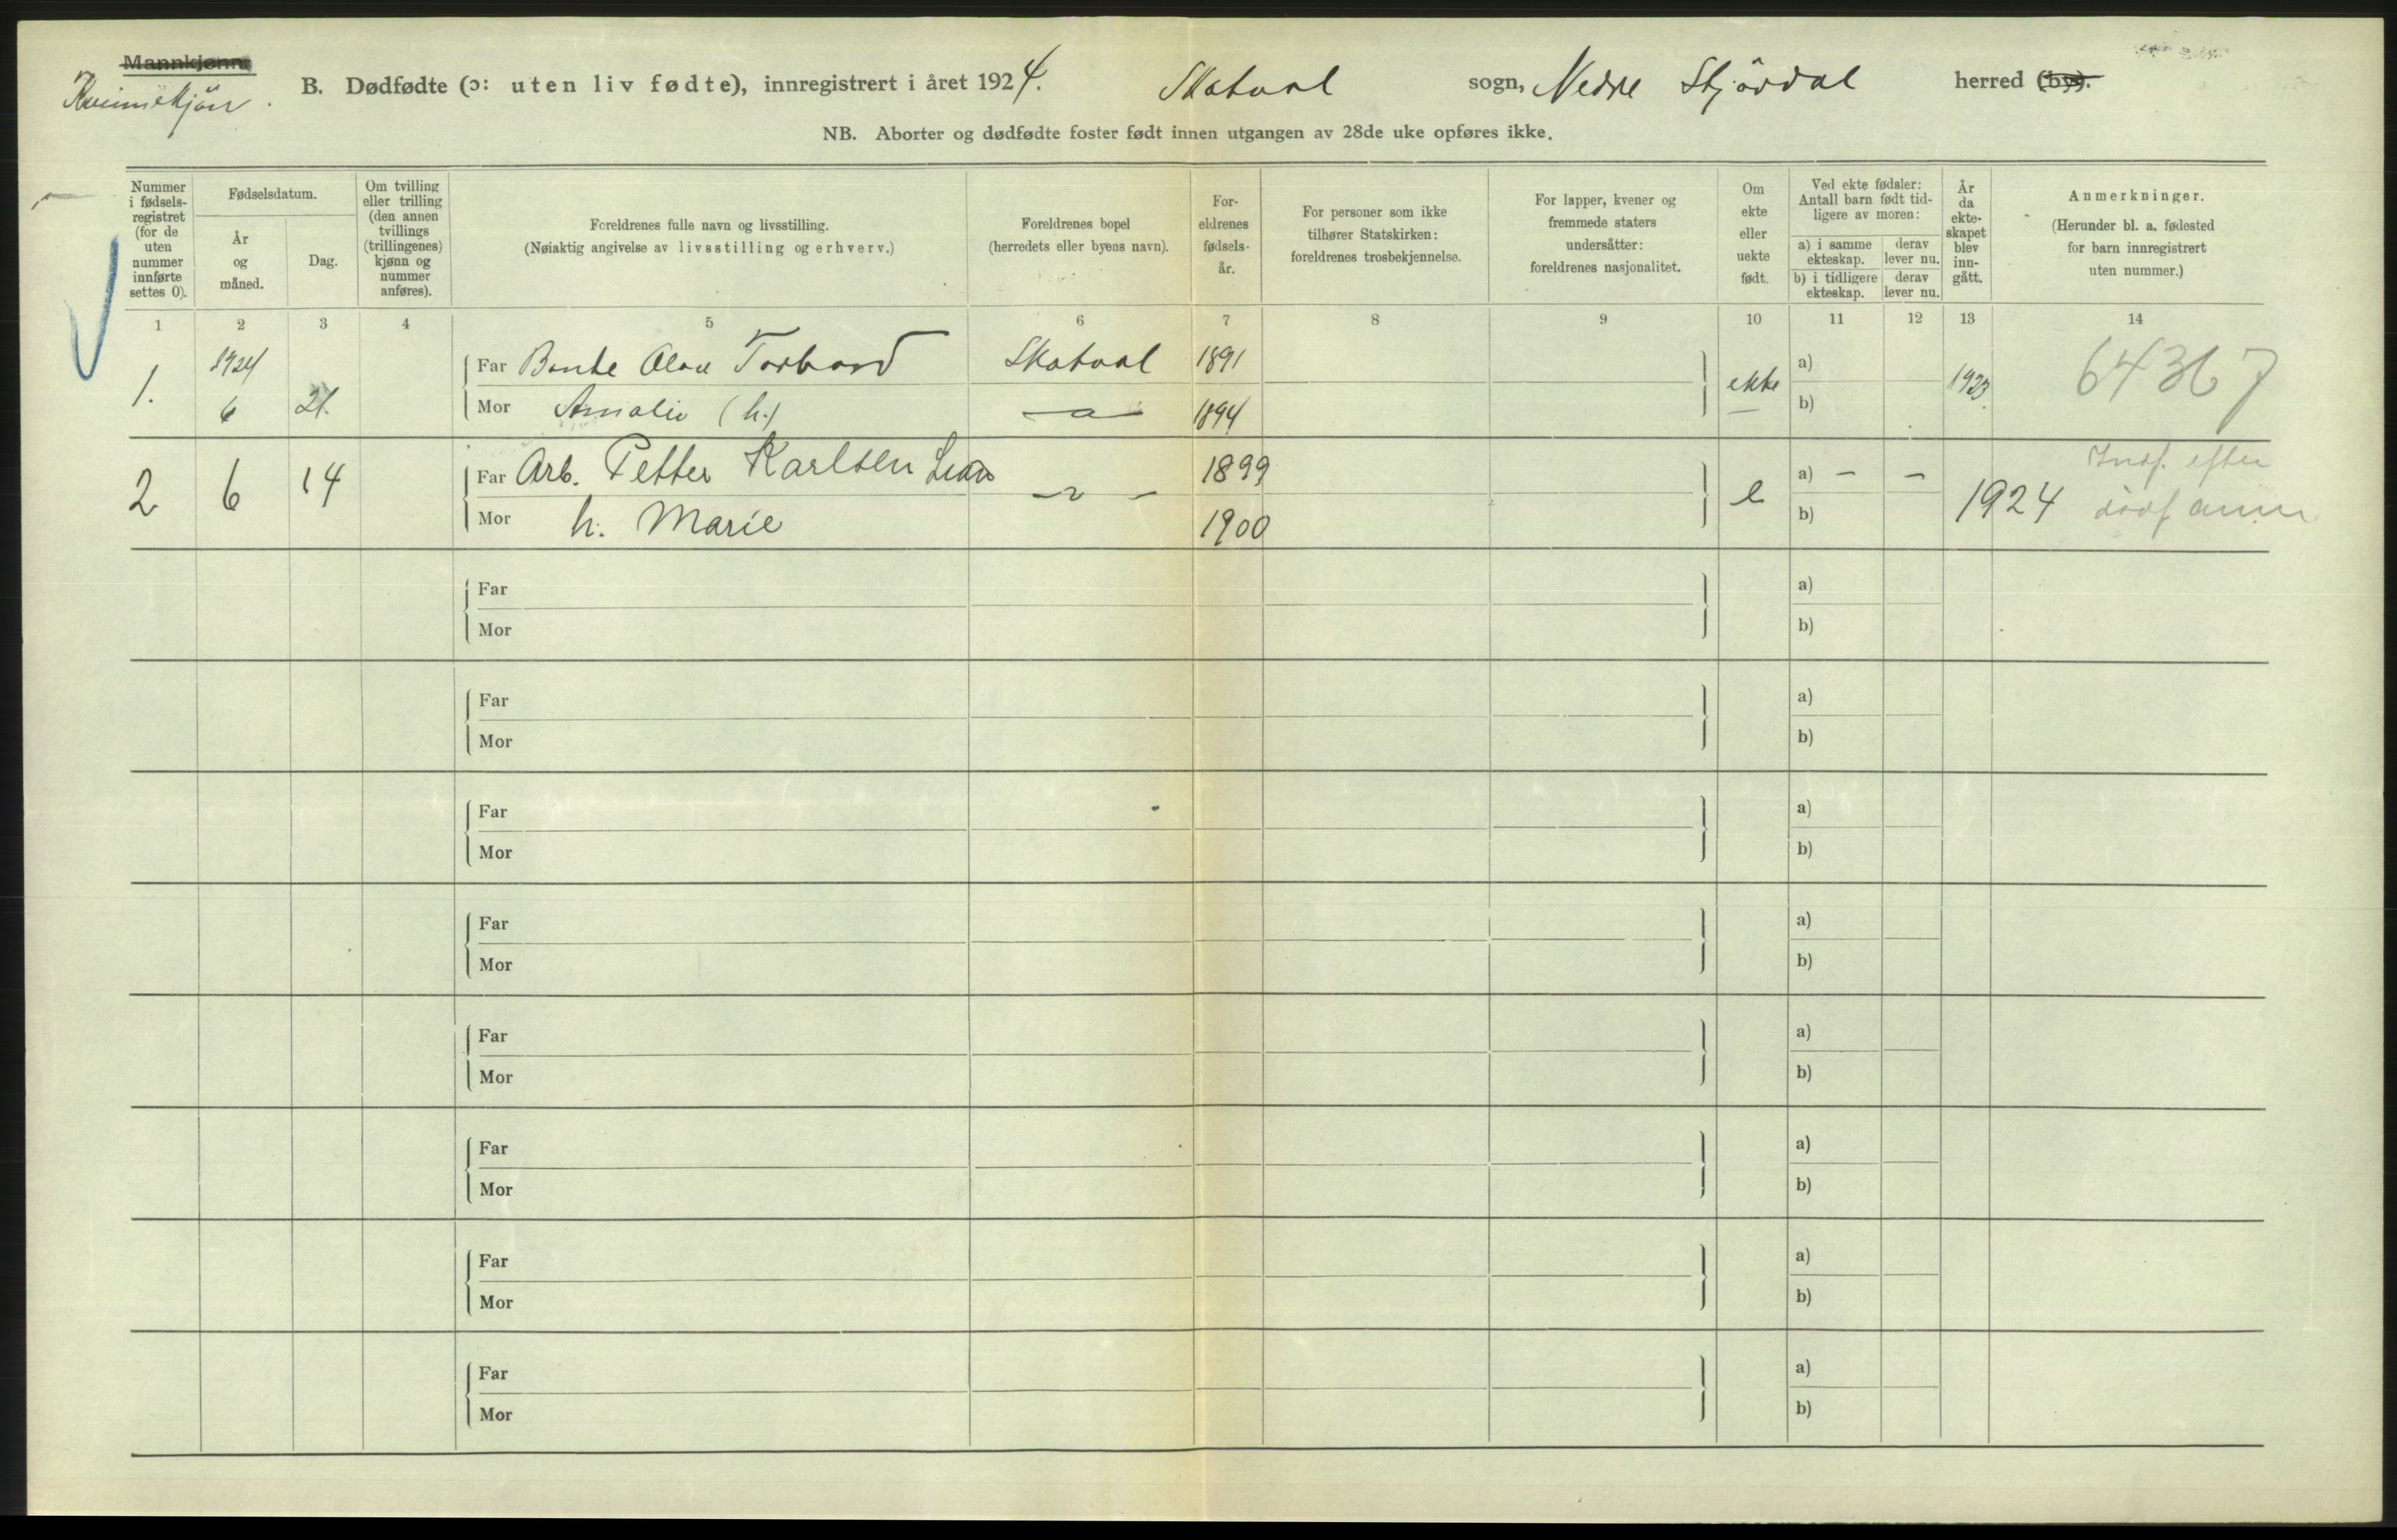 Mannkjønn
Kvinnekjön.
B. Dødfødte (ɔ: uten liv fødte), innregistrert i året 1924. Skatval sogn, Nedre Stjördal herred (by).
NB. Aborter og dødfødte foster født innen utgangen av 28de uke opføres ikke.
Nummer i fødsels-registret (for de uten nummer innførte settes 0).
Fødselsdatum.
År og måned.
Dag.
Om tvilling eller trilling (den annen tvillings (trillingenes) kjønn og nummer anføres).
Foreldrenes fulle navn og livsstilling.
(Nøiaktig angivelse av livsstilling og erhverv.)
Foreldrenes bopel
(herredets eller byens navn).
For-eldrenes fødsels-år.
For personer som ikke tilhører Statskirken: foreldrenes trosbekjennelse.
For lapper, kvener og fremmede staters undersåtter: foreldrenes nasjonalitet.
Om ekte eller uekte født.
Ved ekte fødsler: Antall barn født tid-ligere av moren:
a) i samme ekteskap.
derav lever nu.
b) i tidligere ekteskap.
derav lever nu.
År da ekte-skapet blev inn-gått.
Anmerkninger.
(Herunder bl. a. fødested for barn innregistrert uten nummer.)
1 2 3 4 5 6 7 8 9 10 11 12 13 14
1. 1924 6 21. Far Olav Skatval 1891 ekte a) 1923 64367
Mor Amalie (h.) — a — 1894 b)
2 6 14 Far Arb. Petter Karlsen 1899 e a) — — 1924 efter
Mor h. Marie 1900 b)
Far a)
Mor b)
Far a)
Mor b)
Far a)
Mor b)
Far a)
Mor b)
Far a)
Mor b)
Far a)
Mor b)
Far a)
Mor b)
Far a)
Mor b)